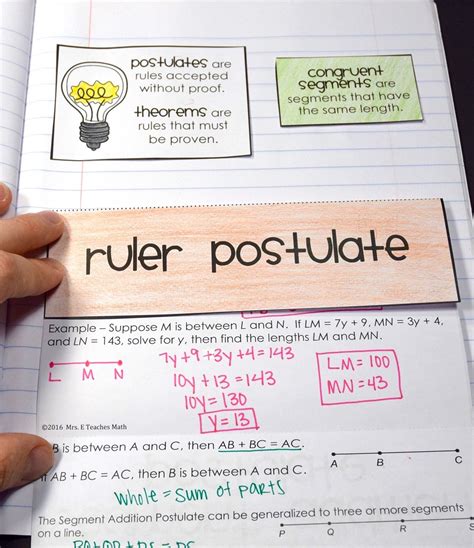 postulates are
rules accepted
without proof.
theorems are
rules that must
be proven.
congruent
segments are
segments that have
the same length.
ruler postulate
Example – Suppose M is between L and N. If LM = 7y + 9, MN = 3y + 4,
and LN = 143, solve for y, then find the lengths LM and MN.
7y+9+3y+4=143
10y+13=143
10y=130
y=13
LM=100
MN=43
L M N
©2016 Mrs. E Teaches Math
B is between A and C, then AB + BC = AC.
If AB + BC = AC, then B is between A and C.
A B C
whole = sum of parts
The Segment Addition Postulate can be generalized to three or more segments
on a line.
P Q R S